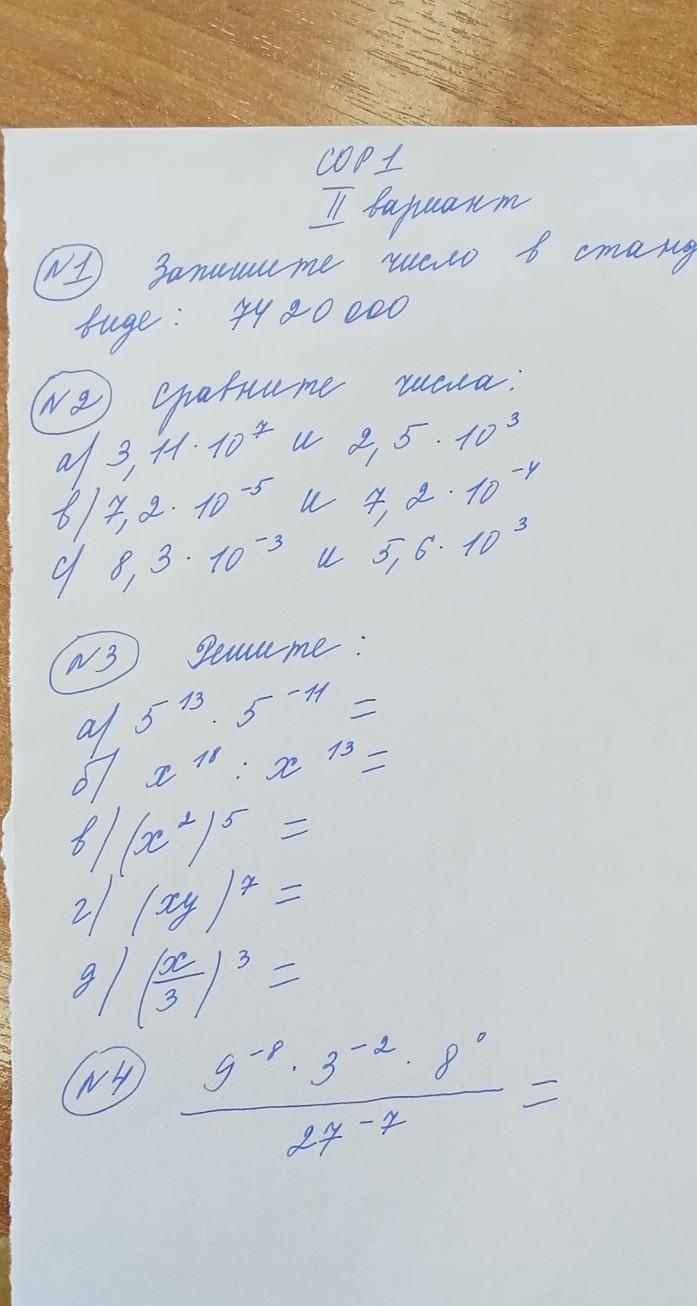 СОР 1
II вариант
№1 Запишите число в станд
виде: 7420000
№2 Сравните числа:
а) 3,11 · 10⁷ и 2,5 · 10³
в) 7,2 · 10⁻⁵ и 7,2 · 10⁻⁴
с) 8,3 · 10⁻³ и 5,6 · 10³
№3 Решите:
а) 5¹³ · 5⁻¹¹ =
б) x¹⁸ : x¹³ =
в) (x²)⁵ =
г) (xy)⁷ =
д) (x/3)³ =
№4 9⁻⁸ · 3⁻² · 8⁰ / 27⁻⁷ =